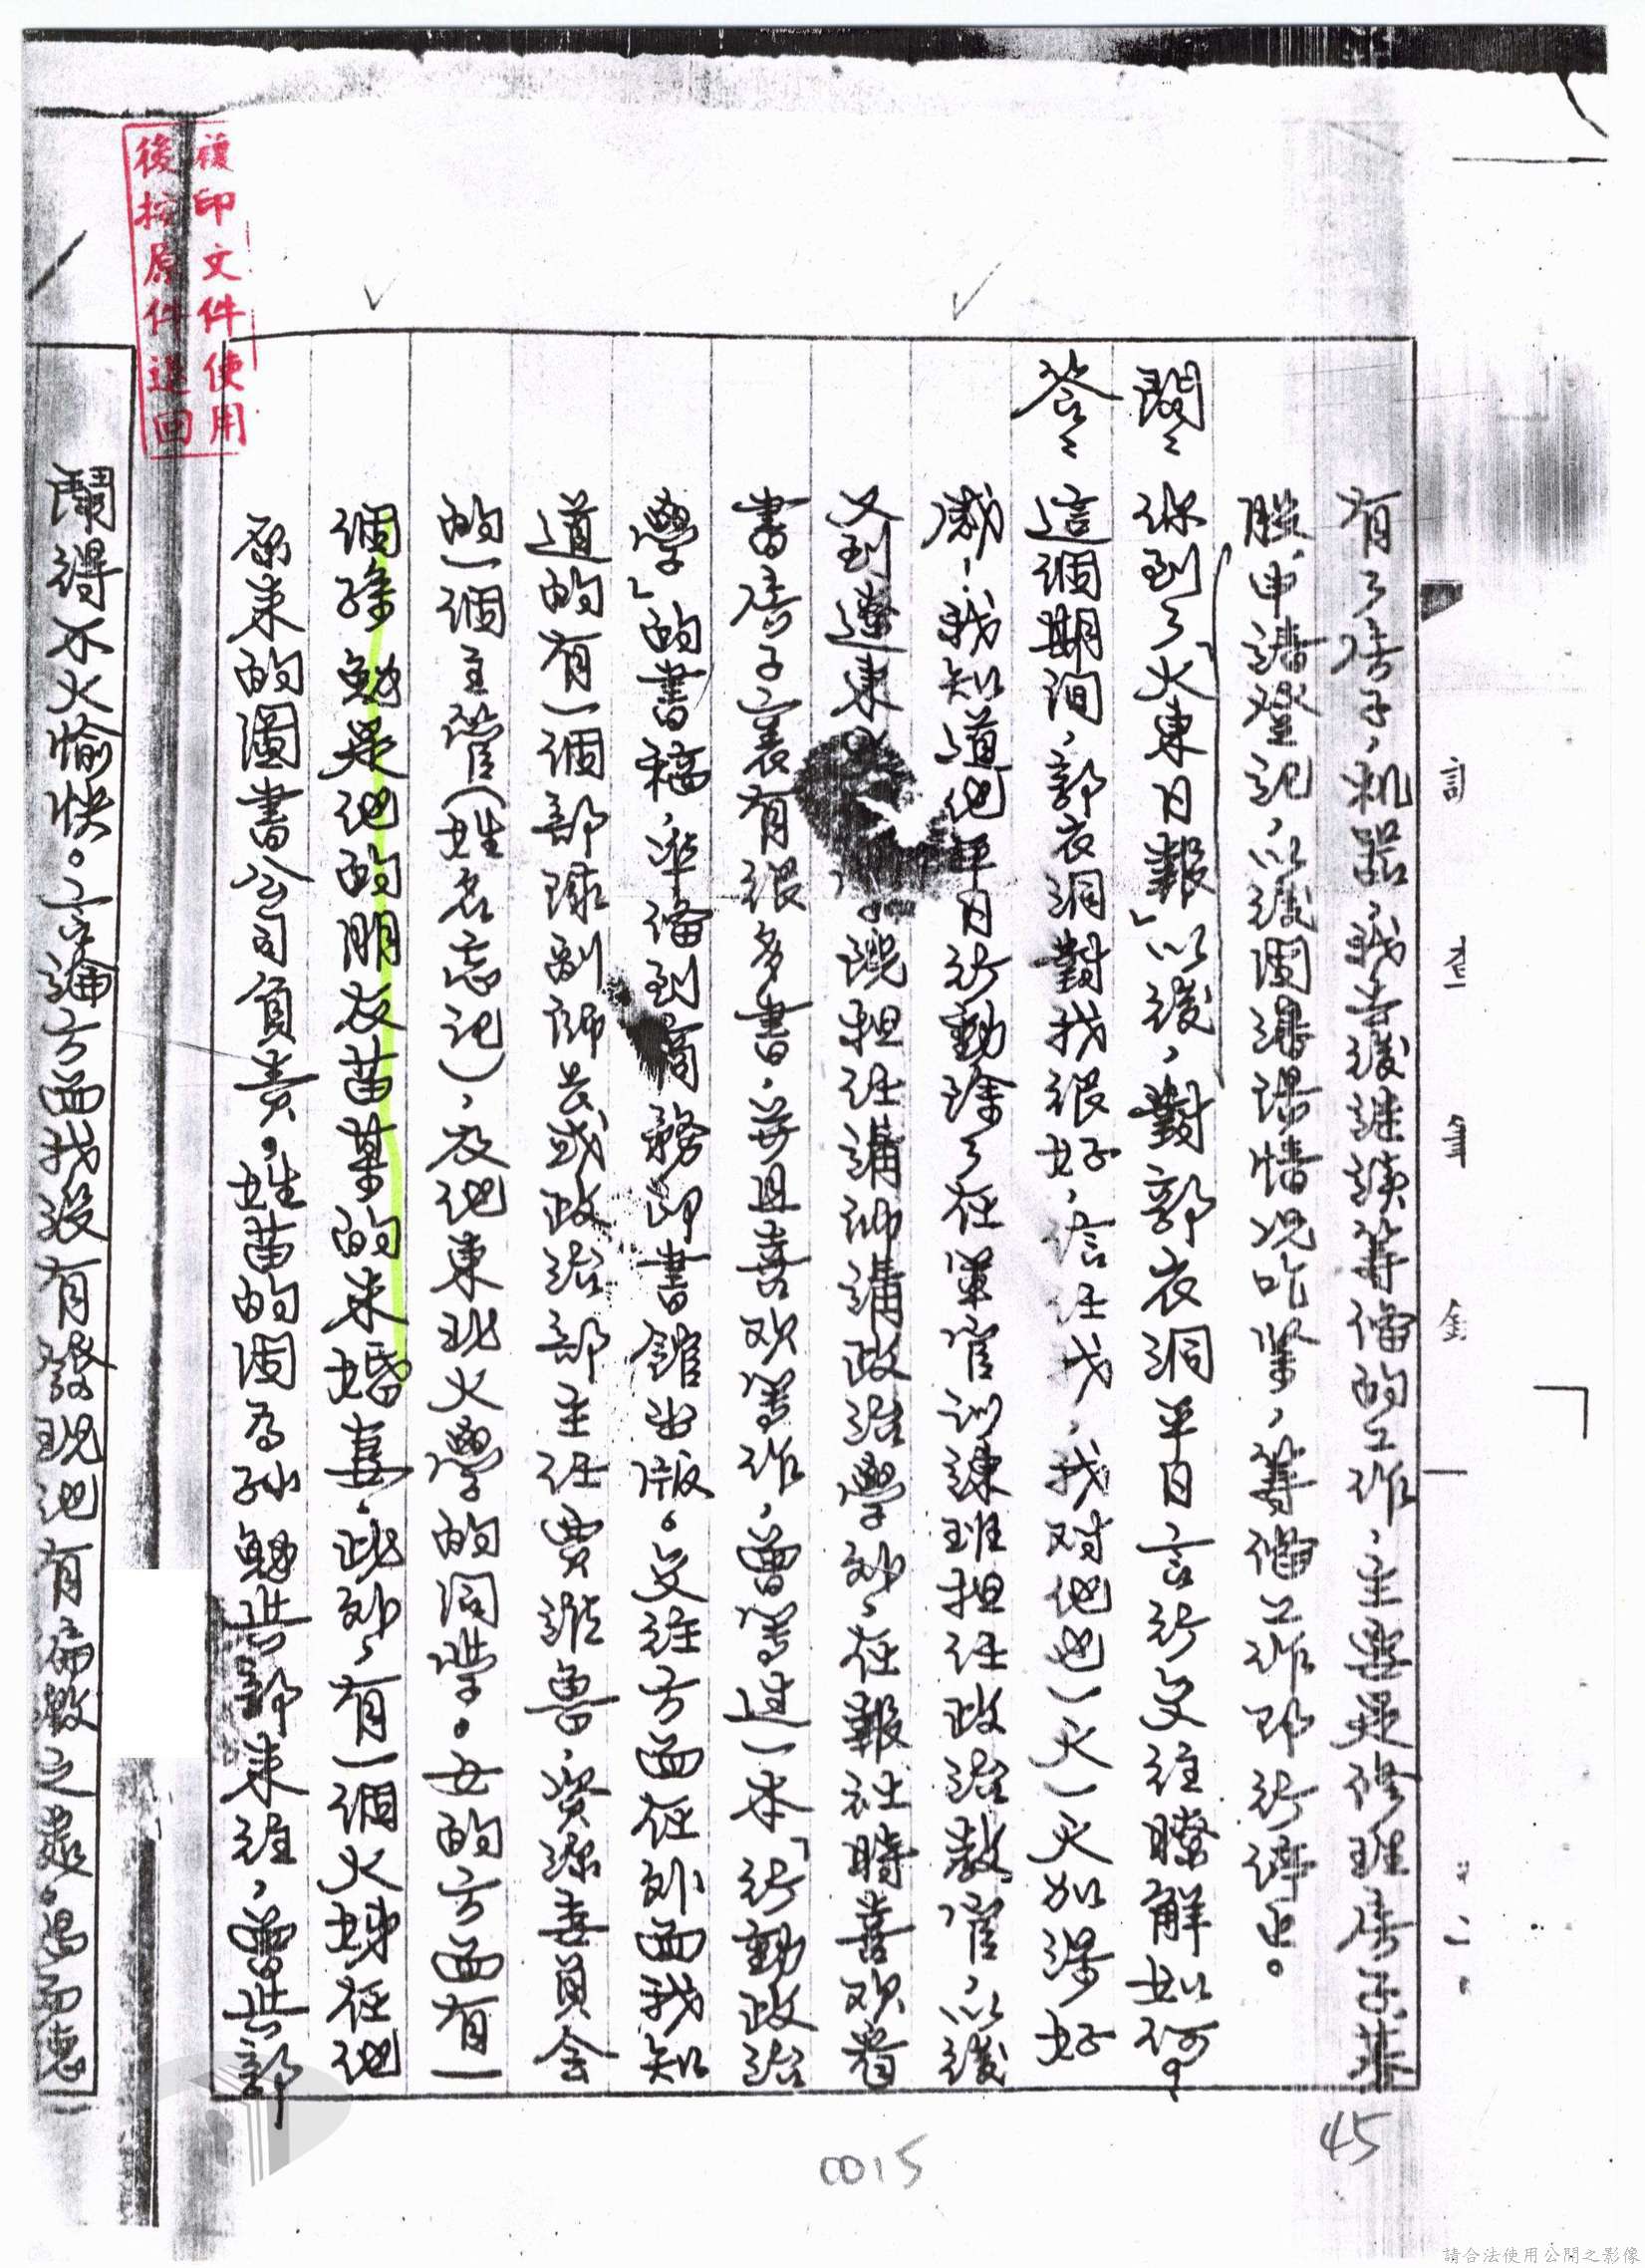 訊查筆錄
有了房子、机器、我去後継続籌備的工作，主要是修理房子募
股、申請登記，以後因漲價情况吃紧，籌備工作即行停止。
問：你到了「大東日報」以後，對郭衣洞平日言行交往瞭解如何？
答：這個期间，郭衣洞對我很好，信任我，我对他也一天一天加深好
感！我知道他平日行動除了在軍官訓練班担任政治教官，以後
又到遼東
説担任講師講政治學外，在報社時喜欢看
書房子裏有很多書，並且喜欢著作，曾著过一本「行動政治
學」的書稿，準備到商務印書館出版。交往方面在外面我知
道的有一個部隊副師長或政治部主任賈維魯，資源委員会
的一個主管（姓名忘记），及他東北大學的同學。女的方面有一
個孫魁是他的朋友苗某的未婚妻，此外，有一個大妹在他
原来的圖書公司負責。姓苗的因為孙魁与郭来往，曾与郭
鬧得不大愉快。言論方面我没有發現他有偏激之處。
複印文件使用
後按原件退回
0015
45
請合法使用公開之影像